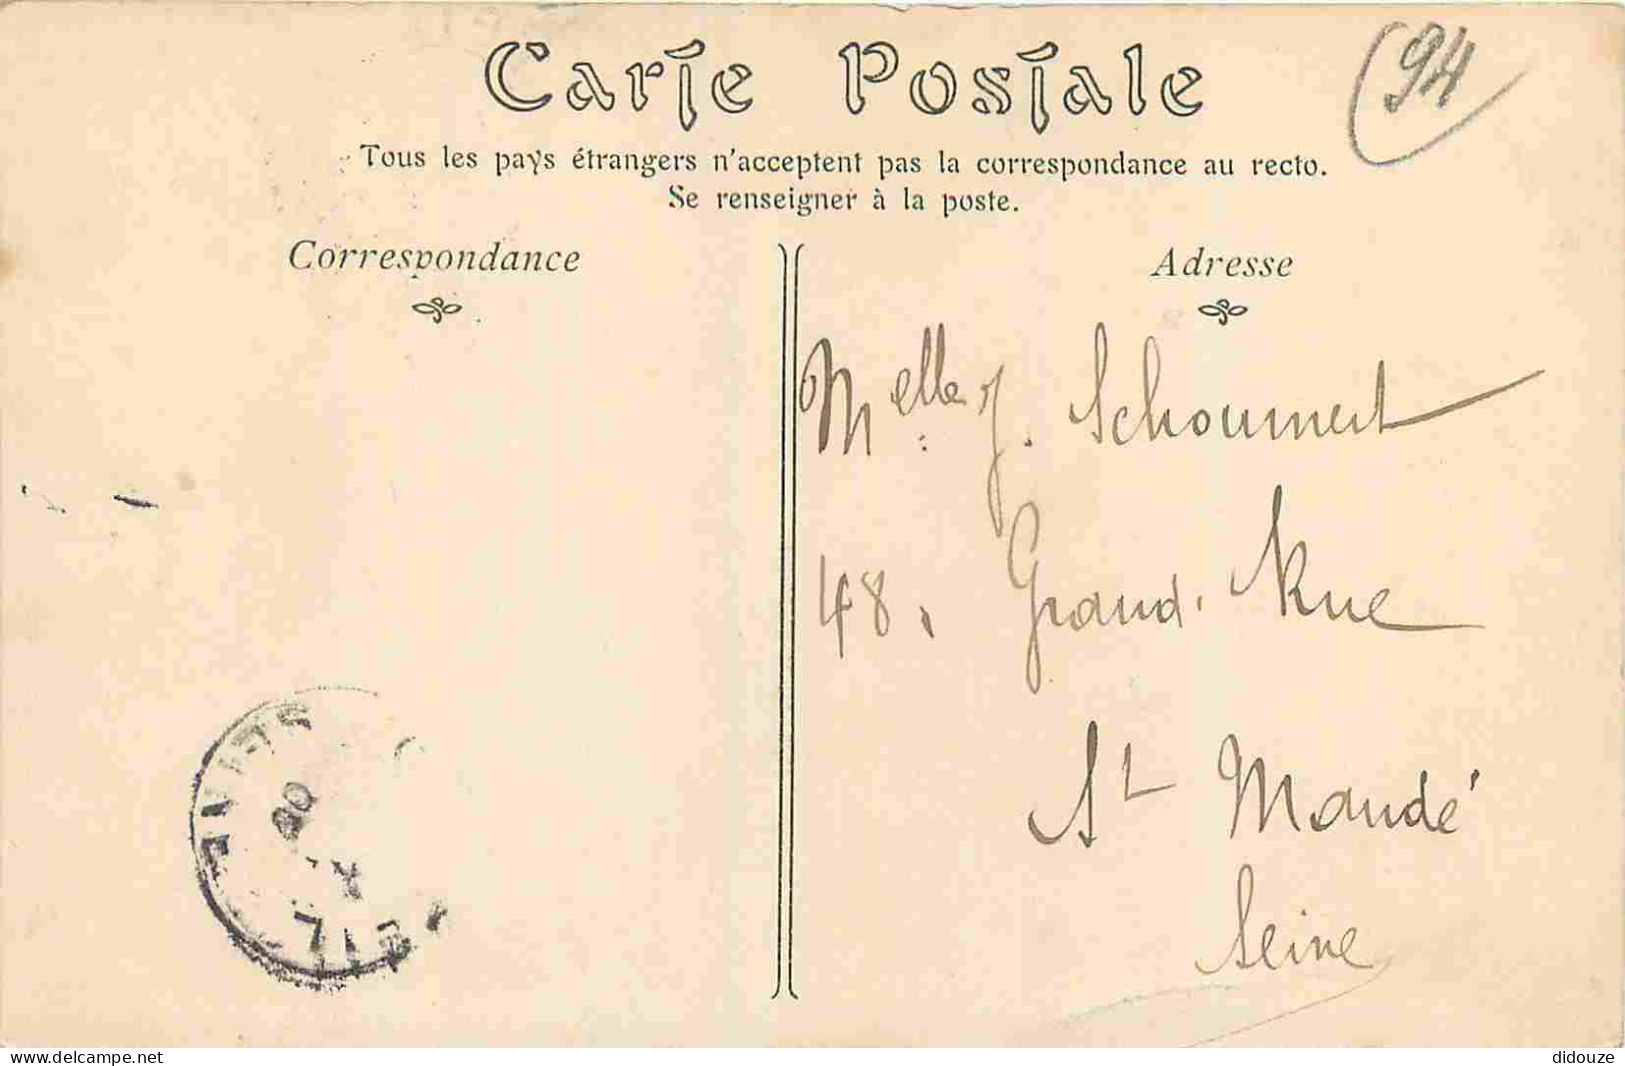 Carte Postale
94
Tous les pays étrangers n'acceptent pas la correspondance au recto.
Se renseigner à la poste.
Correspondance
Adresse
Melle J. Schoumert
48, Grand, Rue
St Mandé
Seine
www.delcampe.net
didouze